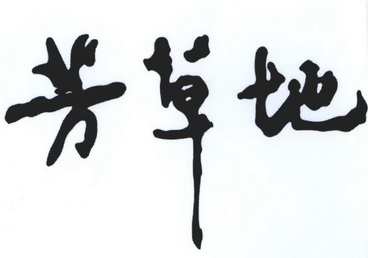 芳草地